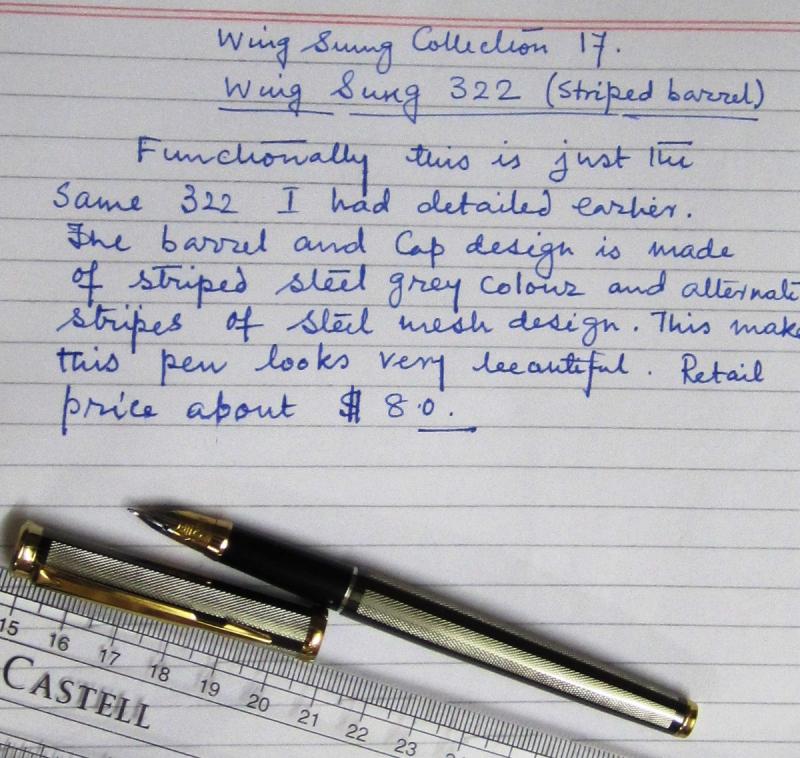 Wing Sung Collection 17.
Wing Sung 322 (striped barrel)
Functionally this is just the
Same 322 I had detailed earlier.
The barrel and Cap design is made
of striped steel grey colour and alternat
stripes of steel mesh design. This make
this pen looks very beautiful. Retail
price about $ 8.0.
15 16 17 18 19 20 21 22 23
CASTELL